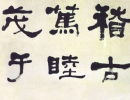 稽古
篤睦
茂于